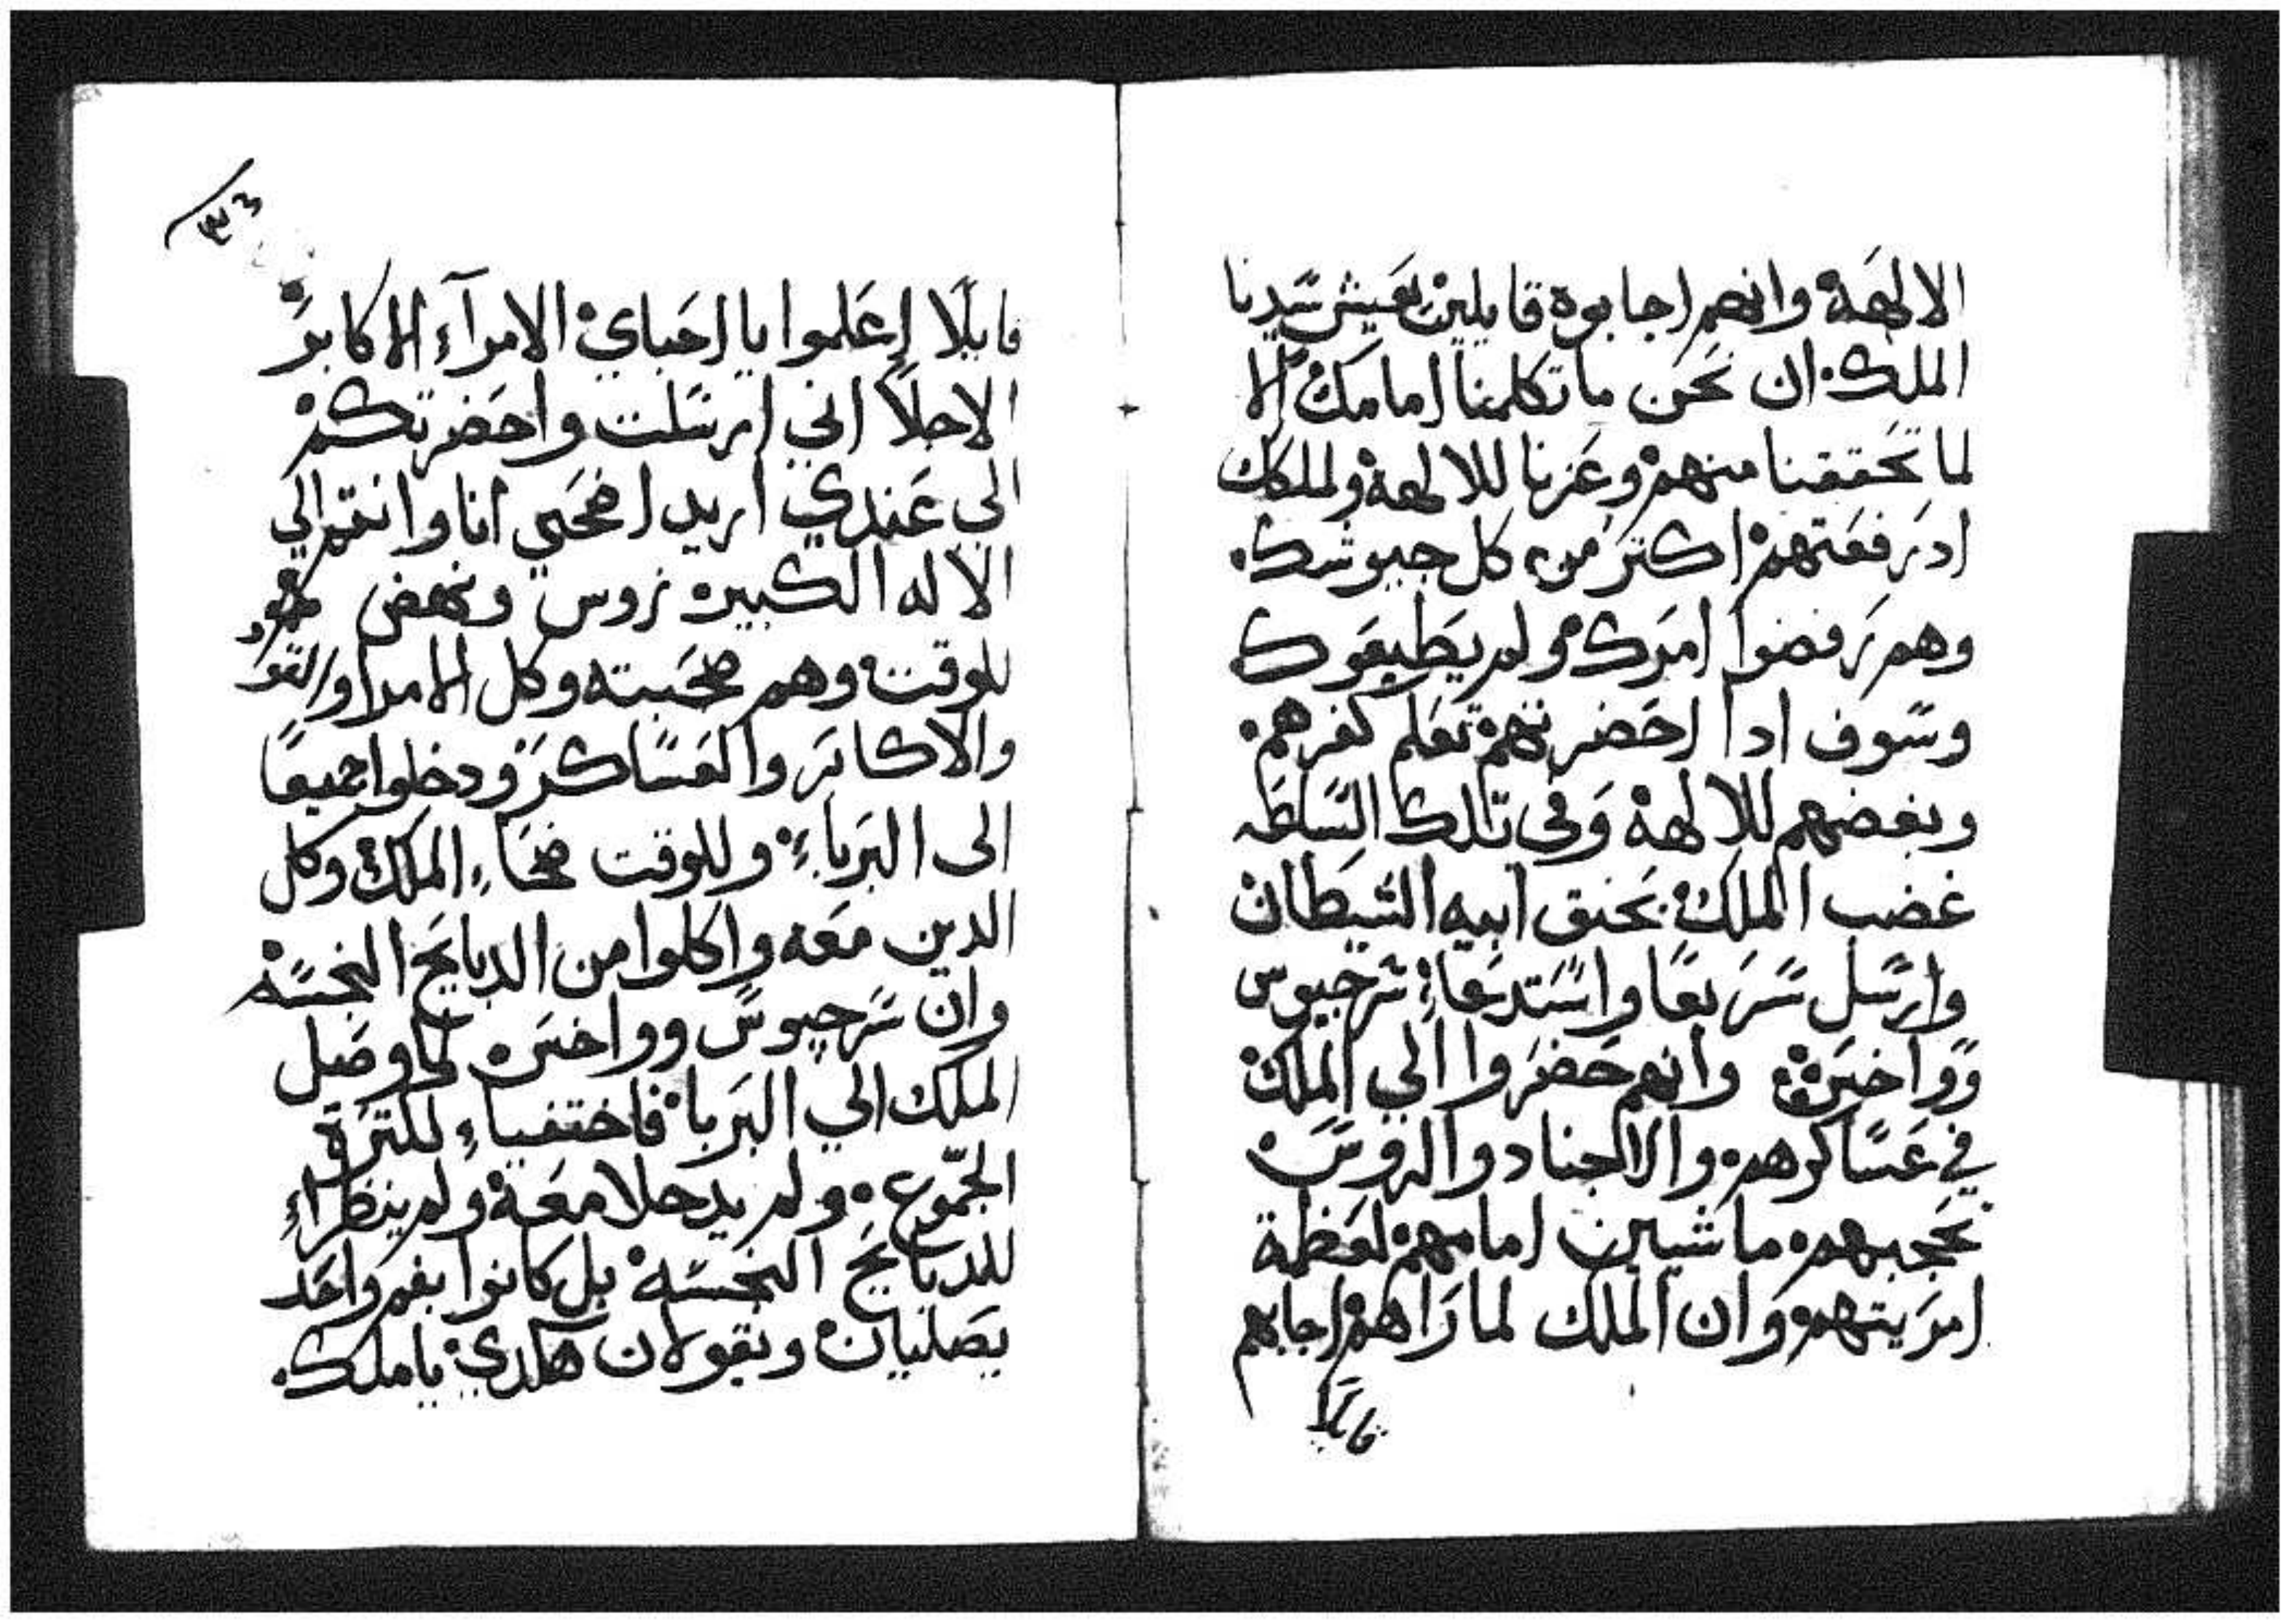 الالهة وانهم اجابوه قايلين يعيش سيدنا
الملك ان نحن ما تكلمنا امامك الا
لما تحققنا منهم وعزنا للالهة ولملكك
اد رفعتهم اكتر من كل جيوشك
وهم رفضوا امرك ولم يطيعوك
وسوف ادا احضرتهم تعلم كفرهم
وبغضهم للالهة وفى تلك الساعه
غضب الملك بحنق ابيه الشيطان
وارسل سريعا واستدعاء سرجيوس
وواخس وانهم حضروا الي الملك
في عساكرهم والاجناد والروسه
تحجبهم ماشيين امامهم لعظمة
امريتهم وان الملك لما راهم اجابهم
قايلا
٣٣
قايلا اعلموا يا احباي الامرآء الاكابر
الاجلا اني ارسلت واحضرتكم
الى عندي اريد اضحي انا وانتم الي
الاله الكبير زوس ونهض
للوقت وهم صحبته وكل الامرا والقواد
والاكابر والعساكر ودخلوا جميعا
الى البرباء وللوقت ضحاء الملك وكل
الدين معه واكلوا من الدبايح النجسه
وان سرجيوس وواخس لما وصل
الملك الي البربا فاختفياء لكترة
الجموع ولم يدخلا معه ولم ينظراء
للدبايح النجسه بل كانوا بفم واحد
يصليان ويقولان هكدي يا ملك